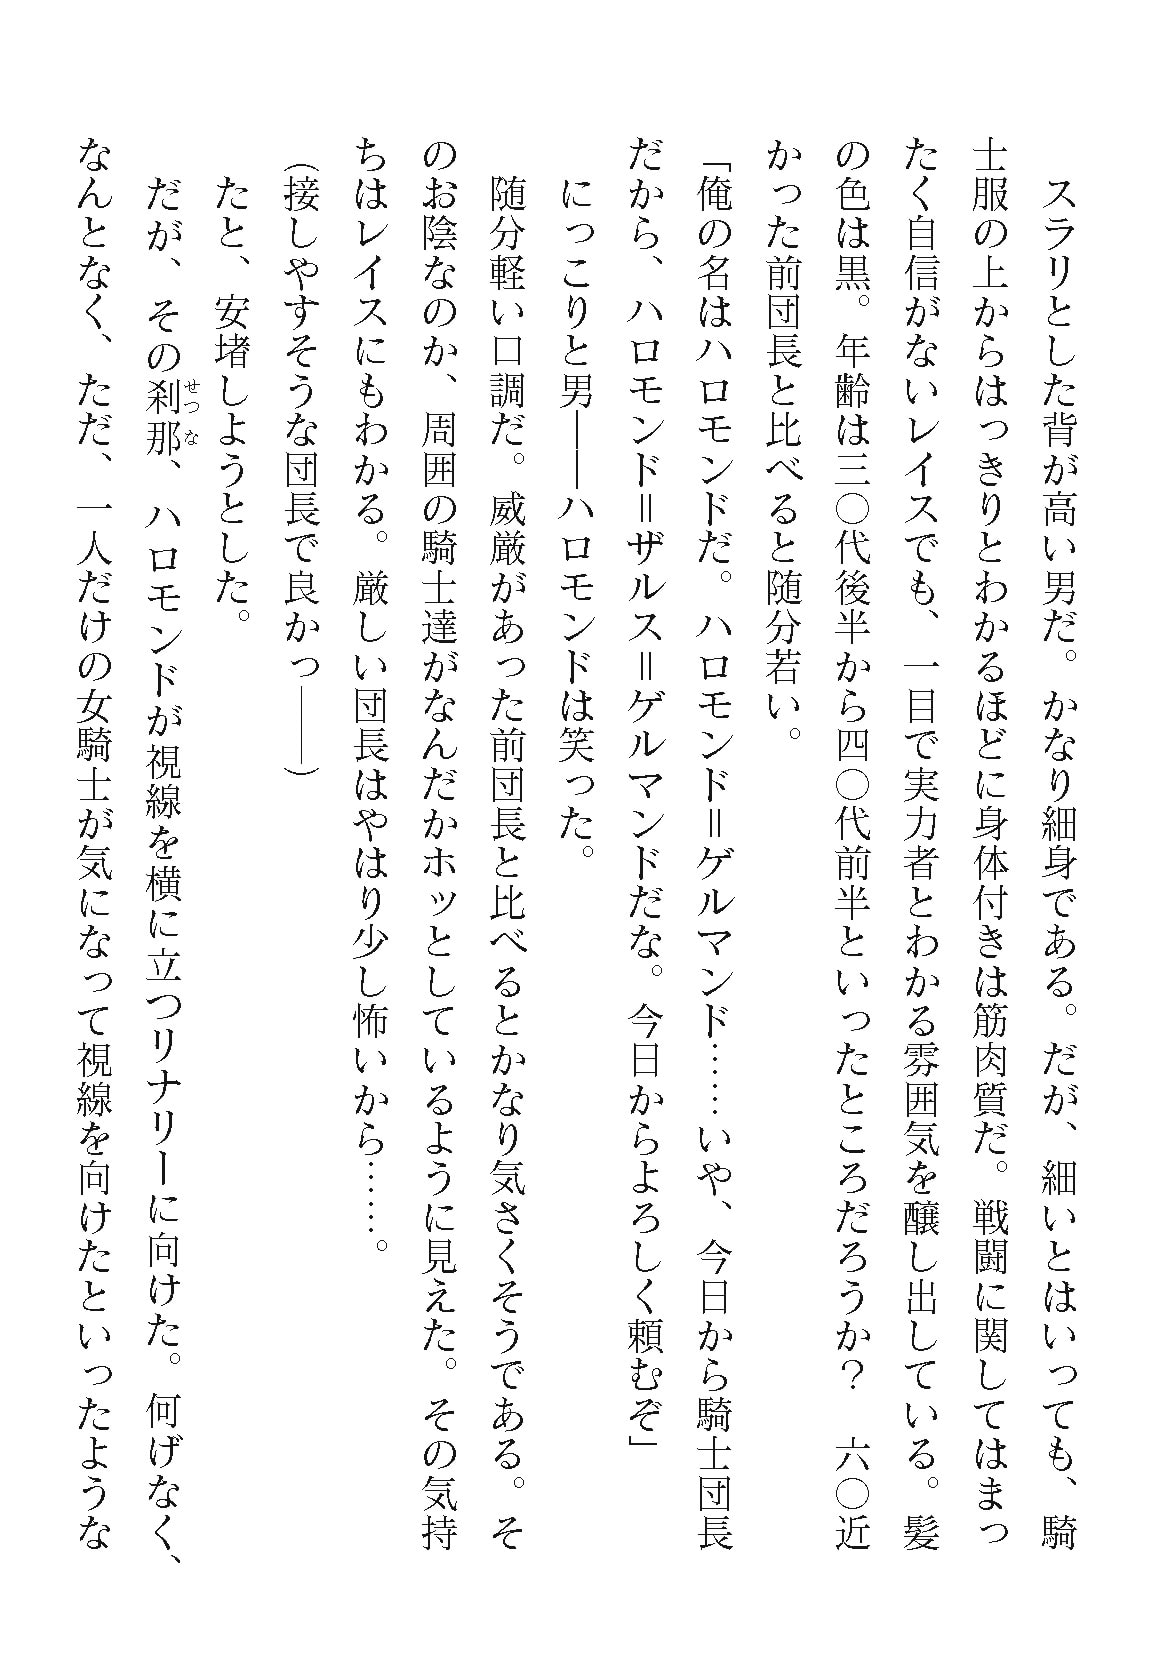 スラリとした背が高い男だ。かなり細身である。だが、細いとはいっても、騎
士服の上からはっきりとわかるほどに身体付きは筋肉質だ。戦闘に関してはまっ
たく自信がないレイスでも、一目で実力者とわかる雰囲気を醸し出している。髪
の色は黒。年齢は三〇代後半から四〇代前半といったところだろうか？　六〇近
かった前団長と比べると随分若い。
「俺の名はハロモンドだ。ハロモンド＝ゲルマンド……いや、今日から騎士団長
だから、ハロモンド＝ザルス＝ゲルマンドだな。今日からよろしく頼むぞ」
にっこりと男――ハロモンドは笑った。
随分軽い口調だ。威厳があった前団長と比べるとかなり気さくそうである。そ
のお陰なのか、周囲の騎士達がなんだかホッとしているように見えた。その気持
ちはレイスにもわかる。厳しい団長はやはり少し怖いから……。
（接しやすそうな団長で良かっ――）
たと、安堵しようとした。
だが、その刹那、ハロモンドが視線を横に立つリナリーに向けた。何げなく、
せつな
なんとなく、ただ、一人だけの女騎士が気になって視線を向けたといったような